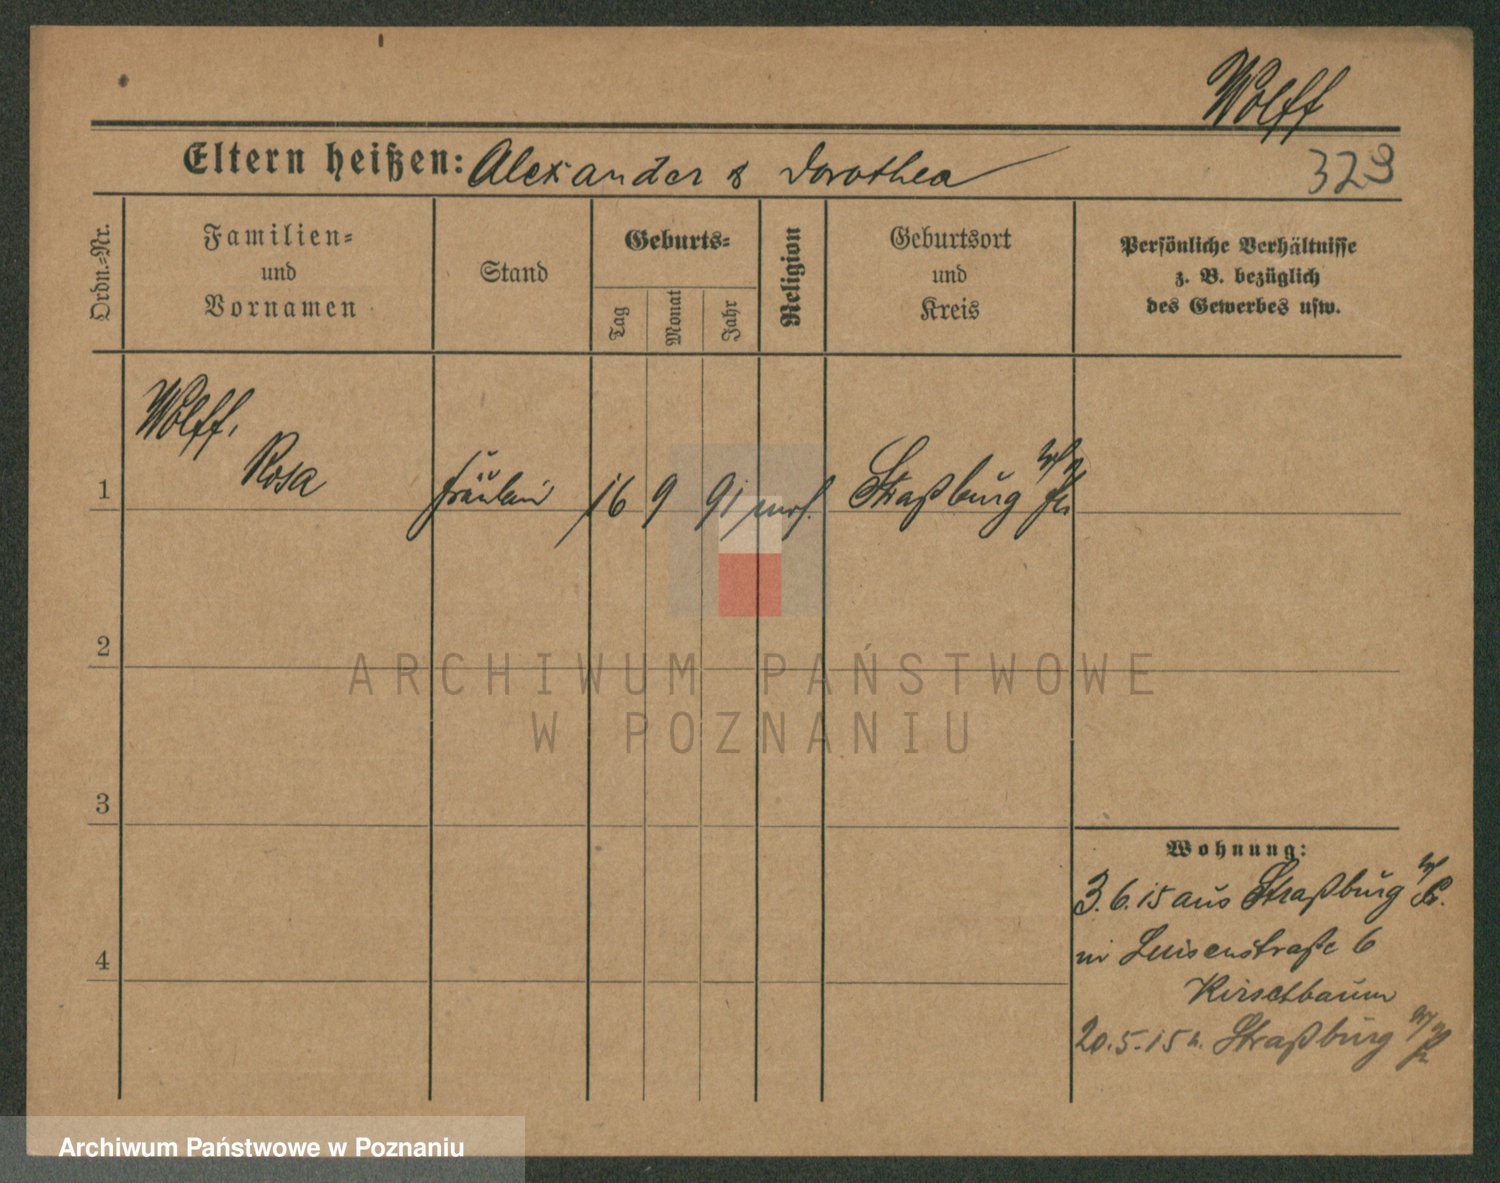 Wolff
Eltern heißen: Alexander & Dorothea
323
Ordn.-Nr.
Familien-
und
Vornamen
Stand
Geburts-
Tag
Monat
Jahr
Religion
Geburtsort
und
Kreis
Persönliche Verhältnisse
z. B. bezüglich
des Gewerbes usw.
Wolff,
Rosa
1
Fräulein
16
9
91
mos.
Straßburg W/Pr
2
ARCHIWUM PAŃSTWOWE
W POZNANIU
3
4
Wohnung:
3.6.15 aus Straßburg W/Pr.
in Luisenstraße 6
Kirschbaum
20.5.15 n. Straßburg W/Pr
Archiwum Państwowe w Poznaniu